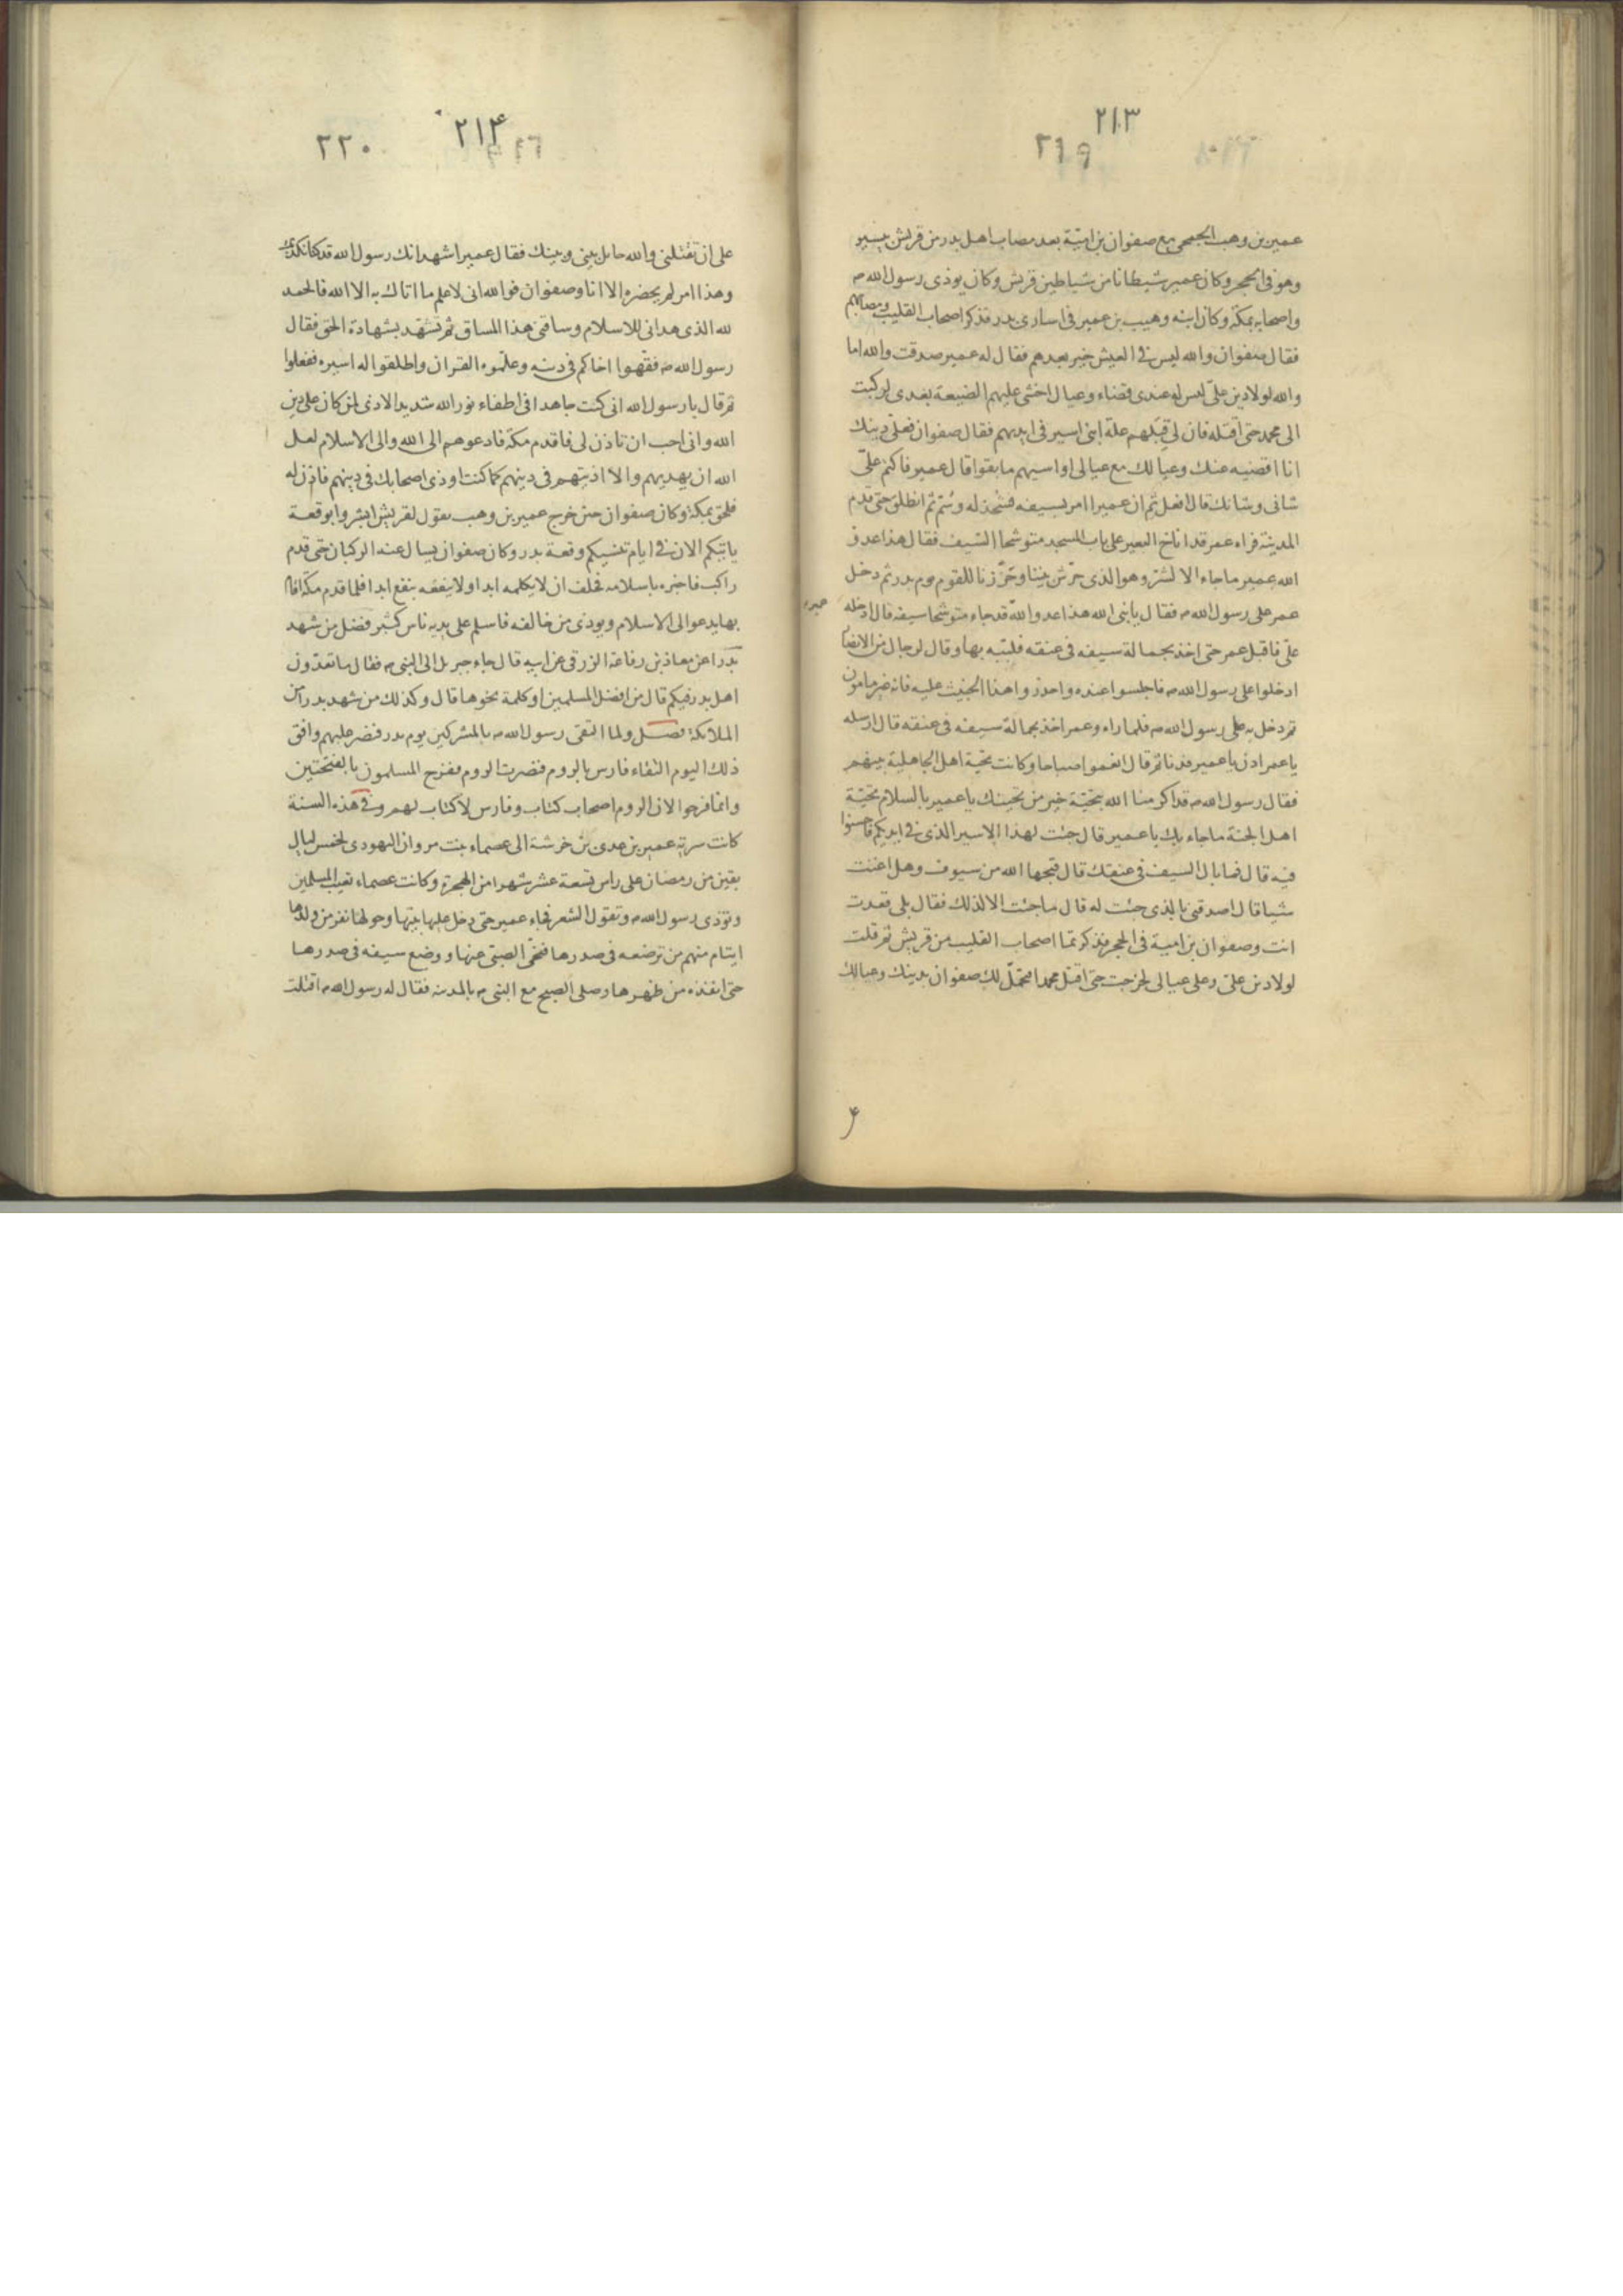 ٢١٣
٢١٩
عمير بن وهب الجمحى مع صفوان بن امية بعد مصاب اهل بدر من قريش بيسير
وهو فى الحجر وكان عمير شيطانا من شياطين قريش وكان يوذى رسول الله ص
واصحابه بمكة وكان ابنه وهيب بن عمير فى اسارى بدر فذكر اصحاب القليب ومصابهم
فقال صفوان والله ليس فى العيش خير بعدهم فقال له عمير صدقت والله اما
والله لولا دين علىّ ليس له عندى قضاء وعيال اخشى عليهم الضيعة بعدى لركبت
الى محمد حتى اقتله فان لى قبلهم علة ابنى اسير فى ايديهم فقال صفوان فعلىّ دينك
انا اقضيه عنك وعيالك مع عيالى اواسيهم ما بقوا قال عمير فاكتم علىّ
شانى وشانك قال افعل ثم ان عميرا امر بسيفه فشحذ له وسُمّ ثم انطلق حتى قدم
المدينة فراه عمر قد اناخ البعير على باب المسجد متوشحا السّيف فقال هذا عدو
الله عمير ما جاء الا لشرّ وهو الذى حرّش بيننا وحَزَرنا للقوم يوم بدر ثم دخل
عمر على رسول الله ص فقال يا نبى الله هذا عدو الله قد جاء متوشحا سيفه قال ادخله
علىّ فاقبل عمر حتى اخذ بحمالة سيفه فى عنقه فلبّبه بها وقال لرجال من الانصار
ادخلوا على رسول الله ص فاجلسوا عنده واحذروا هذا الخبيث عليه فانه غير مامون
ثم دخل به على رسول الله ص فلما راه وعمر اخذ بحمالة سيفه فى عنقه قال ارسله
يا عمر ادن يا عمير فدنا ثم قال انعموا صباحا وكانت تحية اهل الجاهلية بينهم
فقال رسول الله ص قد اكرمنا الله بتحيّة خير من تحيتك يا عمير بالسلام تحيّة
اهل الجنة ما جاء بك يا عمير قال جئت لهذا الاسير الذى فى ايديكم فاحسنوا
فيه قال فما بال السيف فى عنقك قال قبحها الله من سيوف وهل اغنت
شيا قال اصدقنى بالذى جئت له قال ما جئت الا لذلك فقال بلى قعدت
انت وصفوان بن امية فى الحجر فذكرتما اصحاب القليب من قريش ثم قلت
لولا دين علىّ وعلى عيالى لخرجت حتى اقتل محمدا فتحمّل لك صفوان بدينك وعيالك
٢١٤
٢٢٠
على ان تقتلنى والله حايل بينى وبينك فقال عمير اشهد انك رسول الله قد كنا نكذبك
وهذا امر لم يحضره الا انا وصفوان فوالله انى لاعلم ما اتاك به الا الله فالحمد
لله الذى هدانى للاسلام وساقنى هذا المساق ثم تشهّد بشهادة الحق فقال
رسول الله ص فقّهوا اخاكم فى دينه وعلّموه القران واطلقوا له اسيره ففعلوا
ثم قال يا رسول الله انى كنت جاهدا فى اطفاء نور الله شديد الاذى لمن كان على دين
الله وانى احب ان تاذن لى فاقدم مكة فادعوهم الى الله والى الاسلام لعل
الله ان يهديهم والا اذيتهم فى دينهم كما كنت اوذى اصحابك فى دينهم فاذن له
فلحق بمكة وكان صفوان حين خرج عمير بن وهب يقول لقريش ابشروا بوقعة
ياتيكم الان فى ايام تنسيكم وقعة بدر وكان صفوان يسال عنه الركبان حتى قدم
راكب فاخبره باسلامه فحلف ان لا يكلمه ابدا ولا ينفعه بنفع ابدا فلما قدم مكة اقام
بها يدعو الى الاسلام ويوذى من خالفه فاسلم على يديه ناس كثير فضل من شهد
بدرا عن معاذ بن رفاعة الزرقى عن ابيه قال جاء جبريل الى النبى ص فقال ما تعدّون
اهل بدر فيكم قال من افضل المسلمين او كلمة نحوها قال وكذلك من شهد بدرا من
الملائكة فصل ولما التقى رسول الله ص بالمشركين يوم بدر فنصر عليهم وافق
ذلك اليوم التقاء فارس بالروم فنصرت الروم ففرح المسلمون بالفتحين
وانما فرحوا لان الروم اصحاب كتاب وفارس لا كتاب لهم وفى هذه السنة
كانت سرية عمير بن عدى بن خرشة الى عصماء بنت مروان اليهودى لخمس ليال
بقين من رمضان على راس تسعة عشر شهرا من الهجرة وكانت عصماء تعيب المسلمين
وتوذى رسول الله ص وتقول الشعر فجاء عمير حتى دخل عليها بيتها وحولها نفر من ولدها
ايتام منهم من ترضعه فى صدرها فنحّى الصبى عنها ووضع سيفه فى صدرها
حتى انفذه من ظهرها وصلى الصبح مع النبى ص بالمدينة فقال له رسول الله ص اقتلت